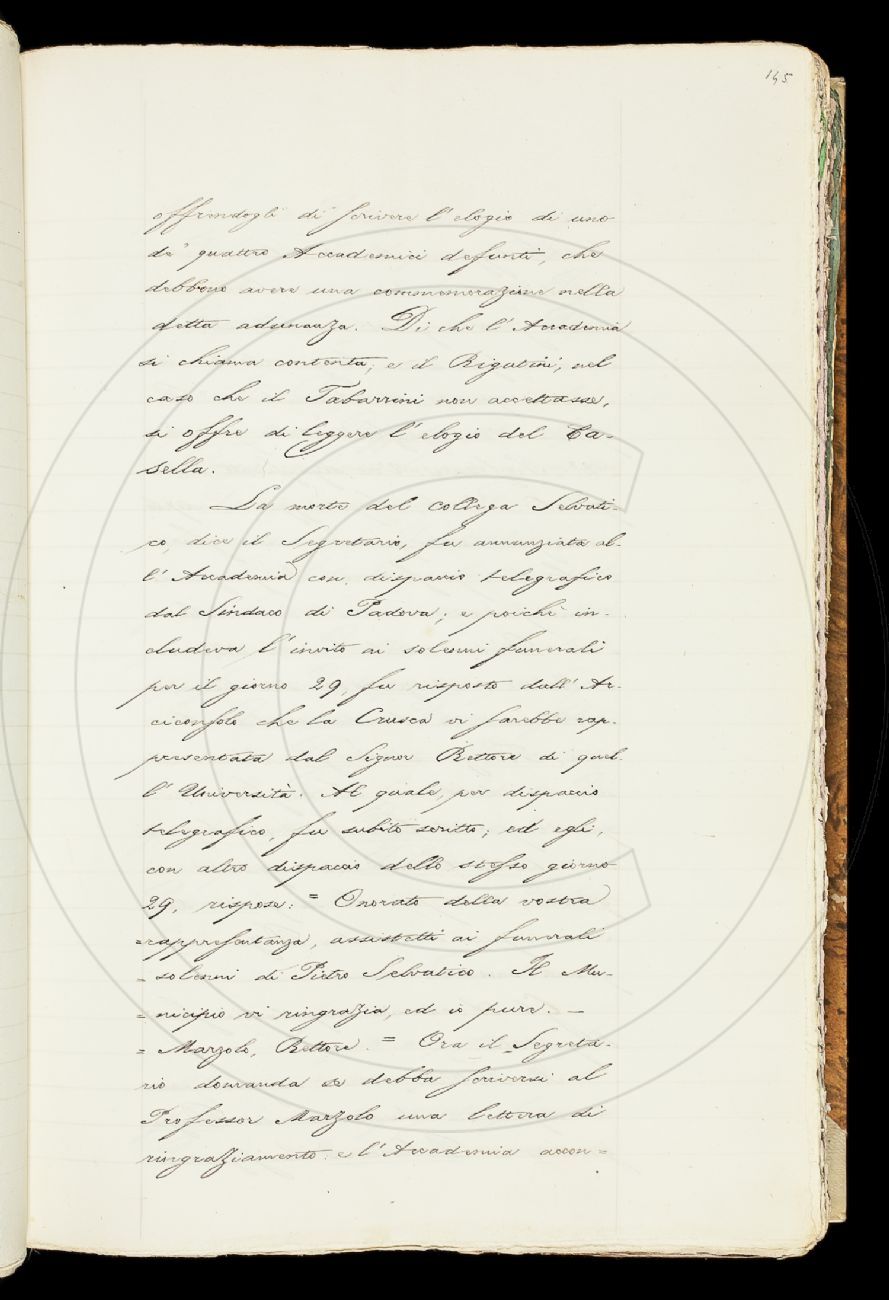 145
offrendogli di scrivere l'elogio di uno
de' quattro Accademici defunti, che
debbono avere una commemorazione nella
detta adunanza. Di che l'Accademia
si chiama contenta; e il Rigutini, nel
caso che il Tabarrini non accettasse,
si offre di leggere l'elogio del Ca-
sella.
La morte del collega Selvati-
co, dice il Segretario, fu annunziata al-
l'Accademia con dispaccio telegrafico
dal Sindaco di Padova; e poichè in-
cludeva l'invito ai solenni funerali
per il giorno 29, fu risposto dall'Ar-
ciconsolo che la Crusca vi sarebbe rap-
presentata dal Signor Rettore di quel-
l'Università. Al quale, per dispaccio
telegrafico, fu subito scritto; ed egli,
con altro dispaccio dello stesso giorno
29, rispose: = Onorato della vostra
=rappresentanza, assistetti ai funerali
= solenni di Pietro Selvatico. Il Mu-
= nicipio vi ringrazia, ed io pure. —
= Marzolo, Rettore. = Ora il Segreta-
rio domanda se debba scriversi al
Professor Marzolo una lettera di
ringraziamento: e l'Accademia accon=